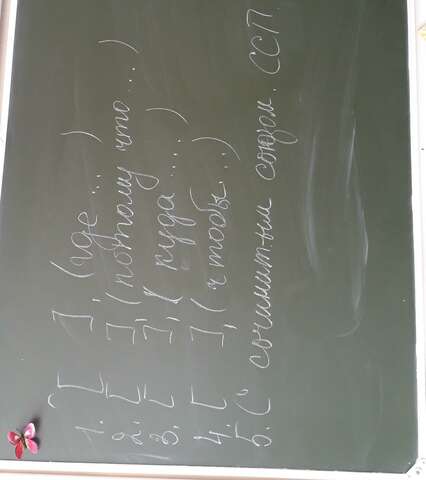 1. [ ], (где ...)
2. [ ], (потому что ...)
3. [ ], ( куда ....)
4. [ ], ( чтобы ...)
5. С сочинит-ым союзом. ССП